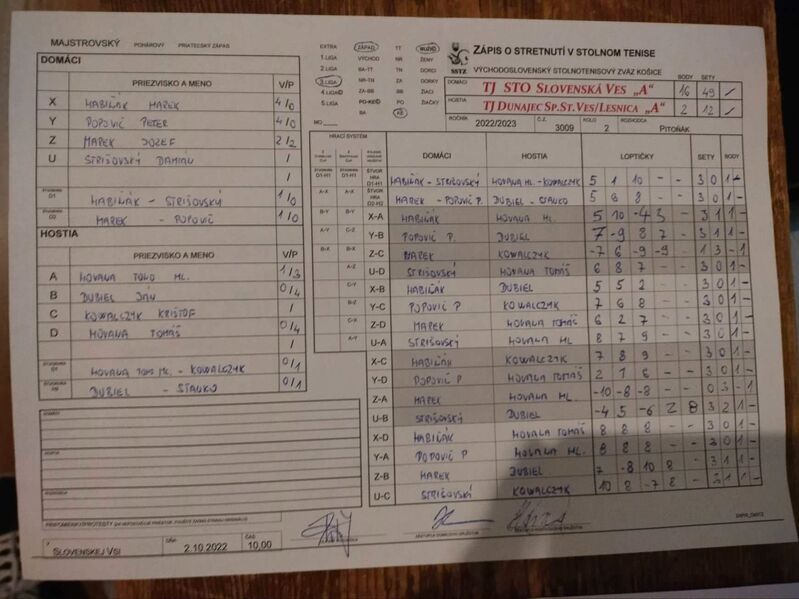 MAJSTROVSKÝ POHÁROVÝ PRIATEĽSKÝ ZÁPAS
DOMÁCI
PRIEZVISKO A MENO V/P
X HABIŇÁK MAREK 4/0
Y POPOVIČ PETER 4/0
Z MAREK JOZEF 2/2
U STRIŠOVSKÝ DAMIÁN /
/
D1 HABIŇÁK - STRIŠOVSKÝ 1/0
D2 MAREK - POPOVIČ 1/0
HOSTIA
PRIEZVISKO A MENO V/P
A HOVANA TOMO ML. 1/3
B DUBIEL JÁN 0/4
C KOWALCZYK KRIŠTOF /
D HOVANA TOMÁŠ 0/4
HOVANA TOMO ML. - KOWALCZYK 0/1
DUBIEL - STAUKO 0/1
SLOVENSKEJ VSI DŇA 2.10.2022 ČAS 10,00
EXTRA ZÁPAD TT MUŽI
1.LIGA VÝCHOD NR ŽENY
2.LIGA BA-TT TN DORCI
3.LIGA NR-TN ZA DORKY
4.LIGA ZA-BB BB ŽIACI
5.LIGA PO-KE PO ŽIAČKY
BA KE
MO
SSTZ
ZÁPIS O STRETNUTÍ V STOLNOM TENISE
VÝCHODOSLOVENSKÝ STOLNOTENISOVÝ ZVÄZ KOŠICE
BODY SETY
DOMÁCI TJ STO SLOVENSKÁ VES „A" 16 49 /
HOSTIA TJ DUNAJEC SP.ST.VES/LESNICA „A" 2 12 /
ROČNÍK 2022/2023 Č.Z. 3009 KOLO 2 ROZHODCA PITOŇÁK
HRACÍ SYSTÉM
DOMÁCI HOSTIA LOPTIČKY SETY BODY
ŠTVOR HRA D1-H1 HABIŇÁK - STRIŠOVSKÝ HOVANA ML.-KOWALCZYK 5 1 10 - - 3 0 1 -
ŠTVOR HRA D2-H2 MAREK - POPOVIČ P. DUBIEL - STAUKO 5 8 8 - - 3 0 1 -
X-A HABIŇÁK HOVANA ML. 5 10 -4 3 - 3 1 1 -
Y-B POPOVIČ P. DUBIEL 7 -9 8 7 - 3 1 1 -
Z-C MAREK KOWALCZYK -7 6 -9 -9 - 1 3 - 1
U-D STRIŠOVSKÝ HOVANA TOMÁŠ 6 8 7 - - 3 0 1 -
X-B HABIŇÁK DUBIEL 5 5 2 - - 3 0 1 -
Y-C POPOVIČ P KOWALCZYK 7 6 8 - - 3 0 1 -
Z-D MAREK HOVANA TOMÁŠ 6 2 7 - - 3 0 1 -
U-A STRIŠOVSKÝ HOVANA ML 8 7 9 - - 3 0 1 -
X-C HABIŇÁK KOWALCZYK 7 8 9 - - 3 0 1 -
Y-D POPOVIČ P HOVANA TOMÁŠ 2 1 6 - - 3 0 1 -
Z-A MAREK HOVANA ML. -10 -8 -8 - - 0 3 - 1
U-B STRIŠOVSKÝ DUBIEL -4 5 -6 2 8 3 2 1 -
X-D HABIŇÁK HOVANA TOMÁŠ 8 8 8 - - 3 0 1 -
Y-A POPOVIČ P HOVANA ML. 8 8 8 - - 3 0 1 -
Z-B MAREK DUBIEL 7 -8 10 8 - 3 1 1 -
U-C STRIŠOVSKÝ KOWALCZYK 10 8 -7 8 - 3 1 1 -